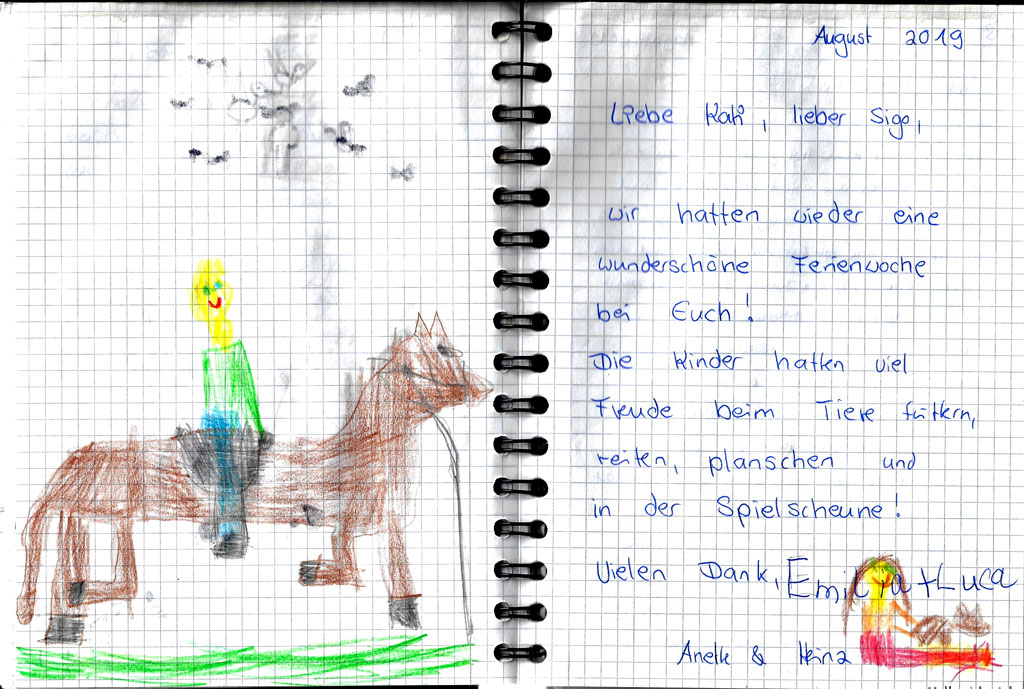 August 2019
Liebe Kati, lieber Sigo,
wir hatten wieder eine
wunderschöne Ferienwoche
bei Euch!
Die Kinder hatten viel
Freude beim Tiere füttern,
reiten, planschen und
in der Spielscheune!
Vielen Dank, Emilia + Luca
& Heinz